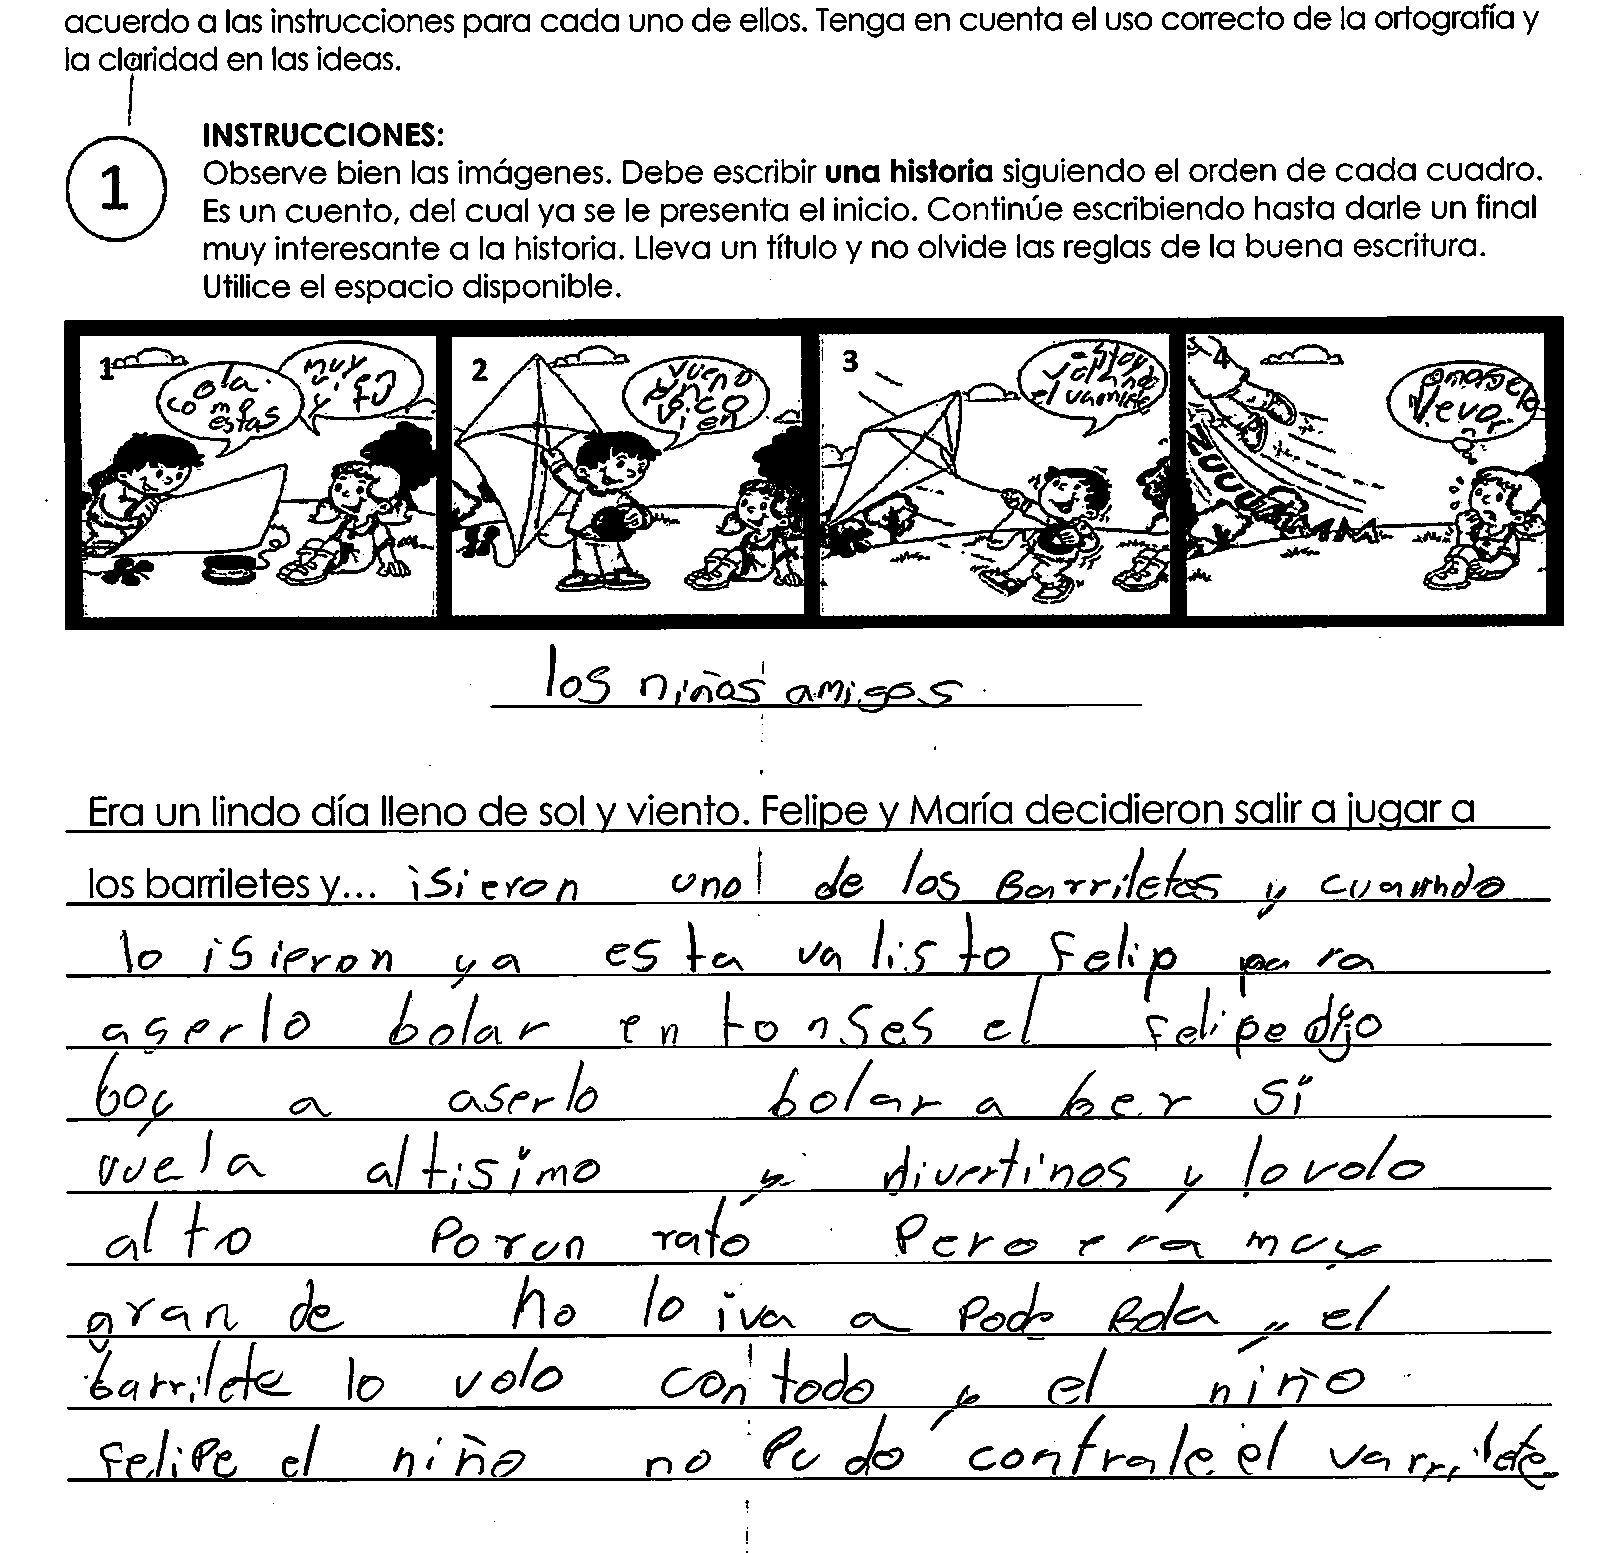 acuerdo a las instrucciones para cada uno de ellos. Tenga en cuenta el uso correcto de la ortografía y
la claridad en las ideas.
1
INSTRUCCIONES:
Observe bien las imágenes. Debe escribir una historia siguiendo el orden de cada cuadro.
Es un cuento, del cual ya se le presenta el inicio. Continúe escribiendo hasta darle un final
muy interesante a la historia. Lleva un título y no olvide las reglas de la buena escritura.
Utilice el espacio disponible.
1
ola
como
estas
muy
y tu
2
vueno
unpoco
vien
3
estoy
volando
el varrilete
4
lleva
ZUUUUM
los niños amigos
Era un lindo día lleno de sol y viento. Felipe y María decidieron salir a jugar a
los barriletes y... isieron uno de los Barriletes y cuando
lo isieron ya esta va listo Felip para
aserlo bolar entonses el Felipe dijo
boy a aserlo bolar a ber si
vuela altisimo y divertinos y lo volo
alto Por un rato Pero era muy
grande no lo iva a Pode Bola y el
barrilete lo volo con todo y el niño
Felipe el niño no Pudo contrale el varrilete